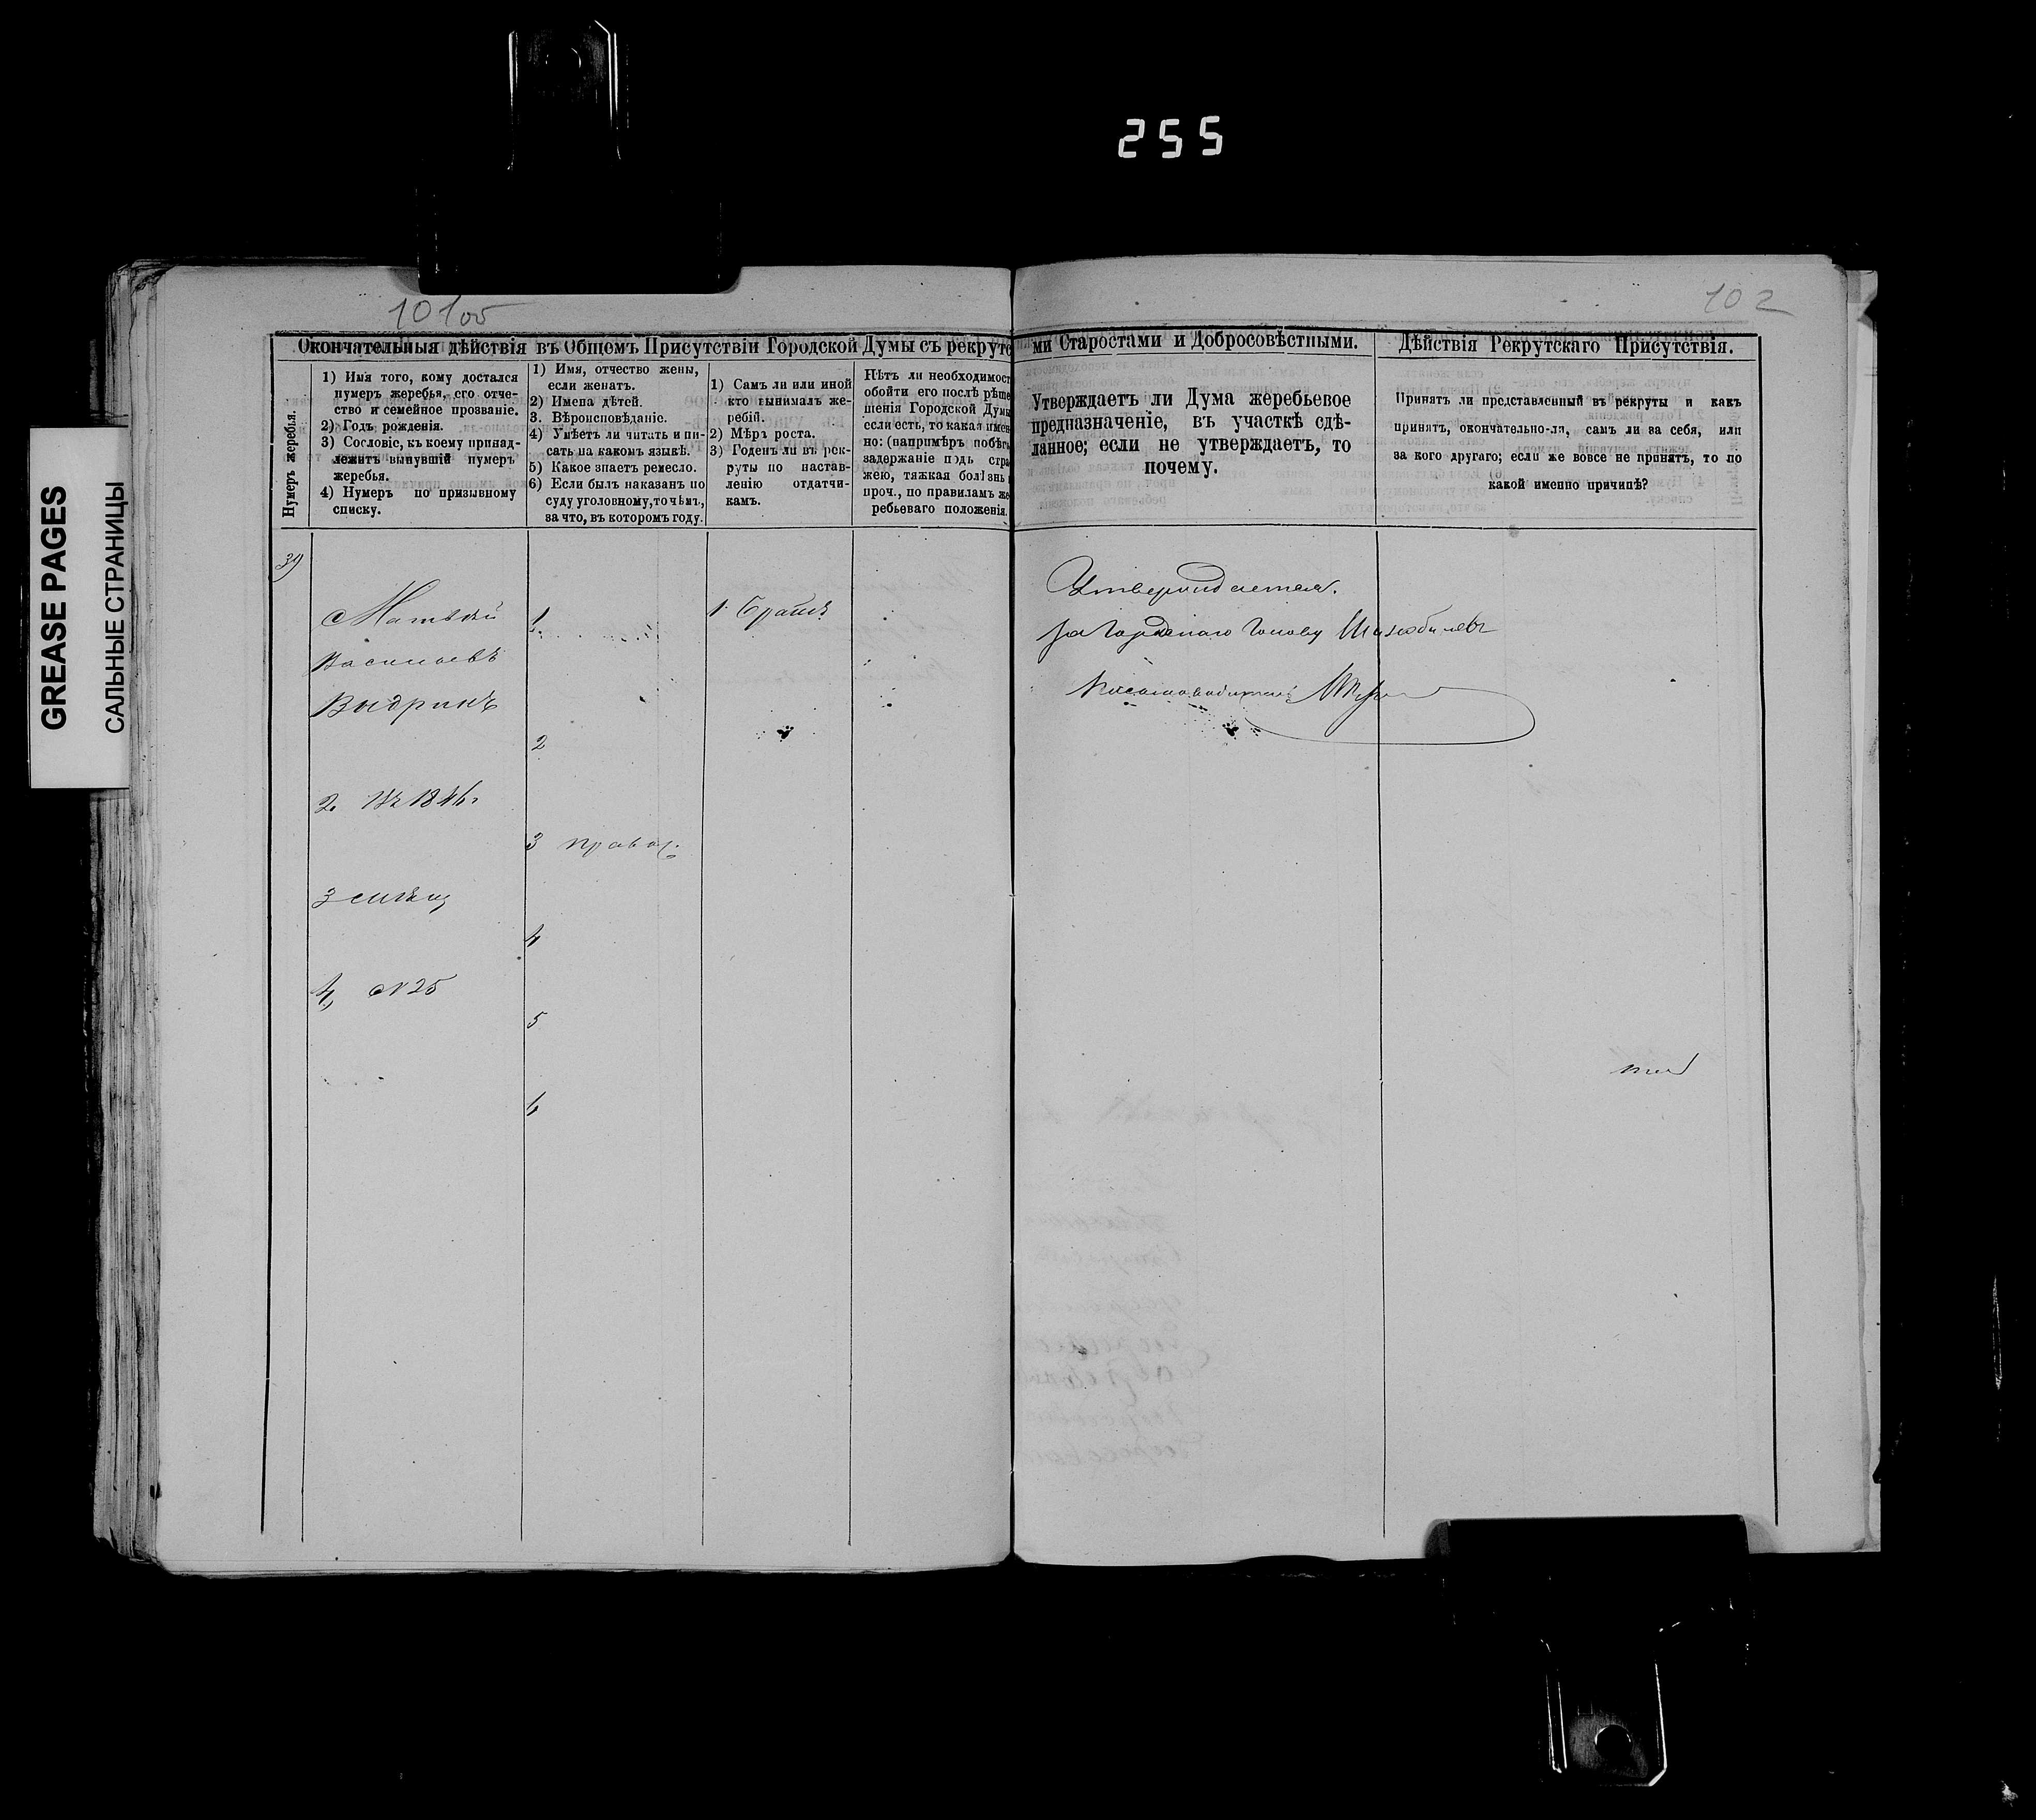 255
GREASE PAGES
САЛЬНЫЕ СТРАНИЦЫ
101об
102
Окончательныя дѣйствія въ Общемъ Присутствіи Городской Думы съ рекрутс
ми Старостами и Добросовѣстными.
Дѣйствія Рекрутскаго Присутствія.
Нумеръ жеребья.
1) Имя того, кому достался
нумеръ жеребья, его отче-
ство и семейное прозваніе.
2) Годъ рожденія.
3) Сословіе, къ коему принад-
лежитъ вынувшій нумеръ
жеребья.
4) Нумеръ по призывному
списку.
1) Имя, отчество жены,
если женатъ.
2) Имена дѣтей.
3. Вѣроисповѣданіе.
4) Умѣетъ ли читать и пи-
сать на какомъ языкѣ.
5) Какое знаетъ ремесло.
6) Если былъ наказанъ по
суду уголовному, то чѣмъ,
за что, въ которомъ году.
1) Самъ ли или иной
кто вынималъ же-
ребій.
2) Мѣръ роста.
3) Годенъ ли въ рек-
руты по настав-
ленію отдатчи-
камъ.
Нѣтъ ли необходимост
обойти его послѣ рѣше
шенія Городской Думы
если есть, то какая имен
но: (напримѣръ побѣгъ
задержаніе подъ стра
жею, тяжкая болѣзнь и
проч., по правиламъ же
ребьеваго положенія.
Утверждаетъ ли Дума жеребьевое
предназначеніе, въ участкѣ сдѣ-
ланное; если не утверждаетъ, то
почему.
Принятъ ли представленный въ рекруты и какъ
принятъ, окончательно-ли, самъ ли за себя, или
за кого другаго; если же вовсе не принятъ, то по
какой именно причинѣ?
39
Матвѣй
Васильевъ
Выдринъ
2. Въ 1846г
3 мѣщ
4, №25
1.
2
3 Правос.
4
5
6
1. Братъ
Утверждается.
За Городскаго Голову
Письмоводитель